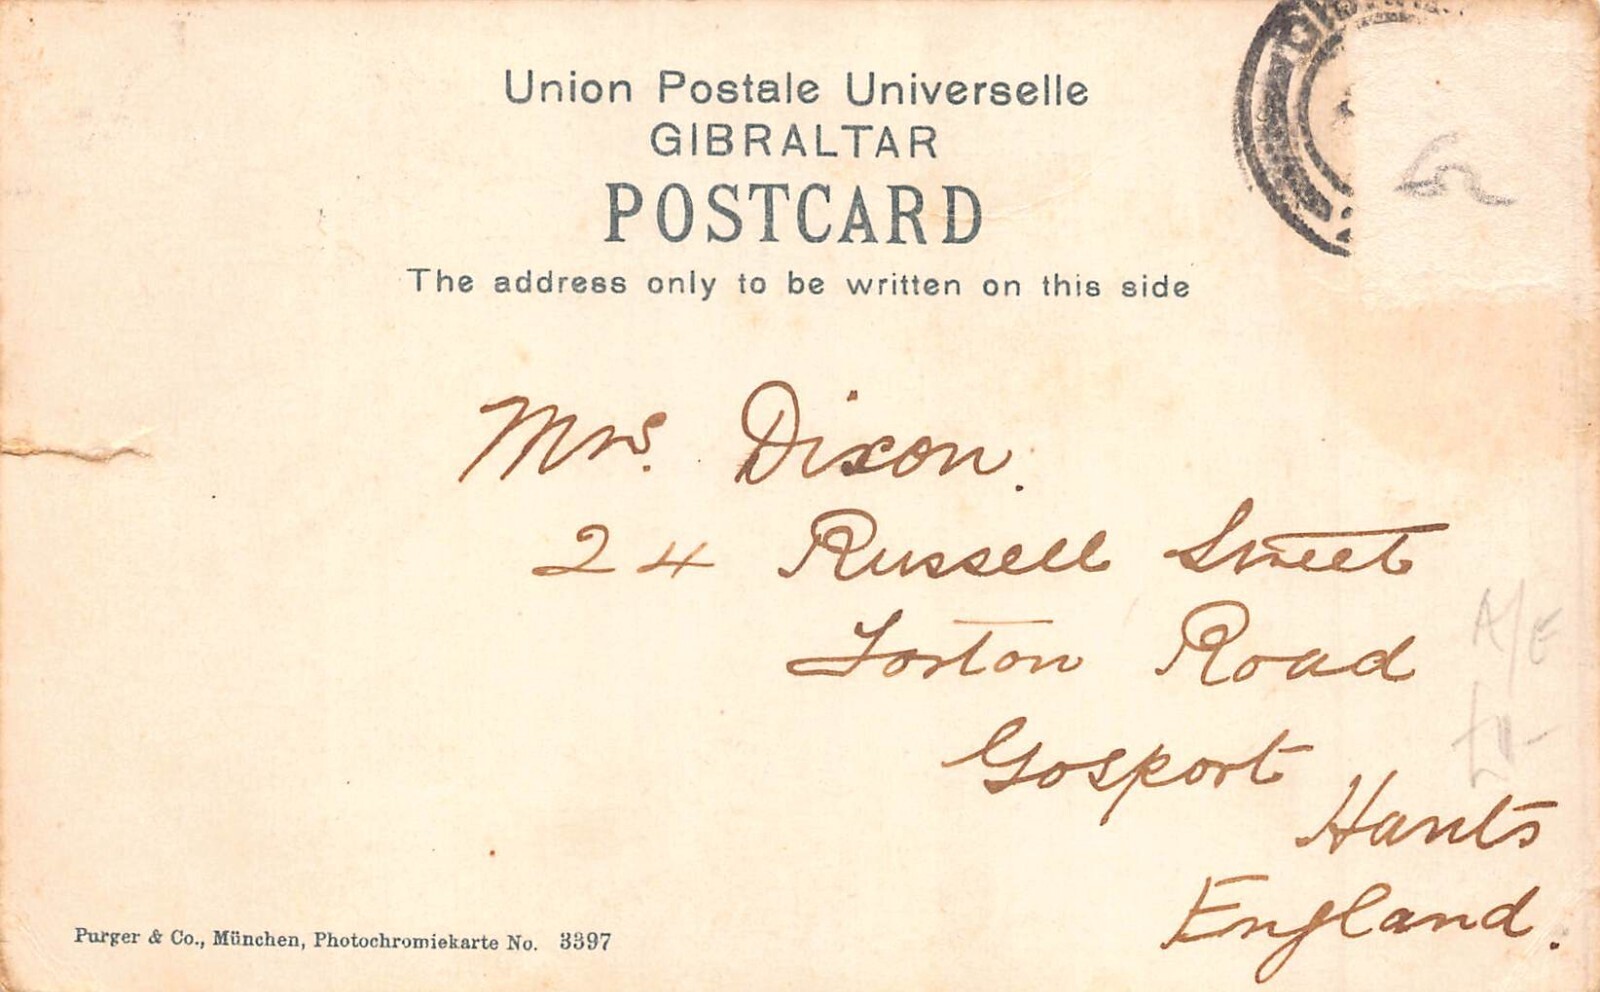 Union Postale Universelle
GIBRALTAR
POSTCARD
The address only to be written on this side
Mrs. Dixon.
24 Russell Street
Forton Road
Gosport
Hants
England.
A/E
Purger & Co., München, Photochromiekarte No. 3397